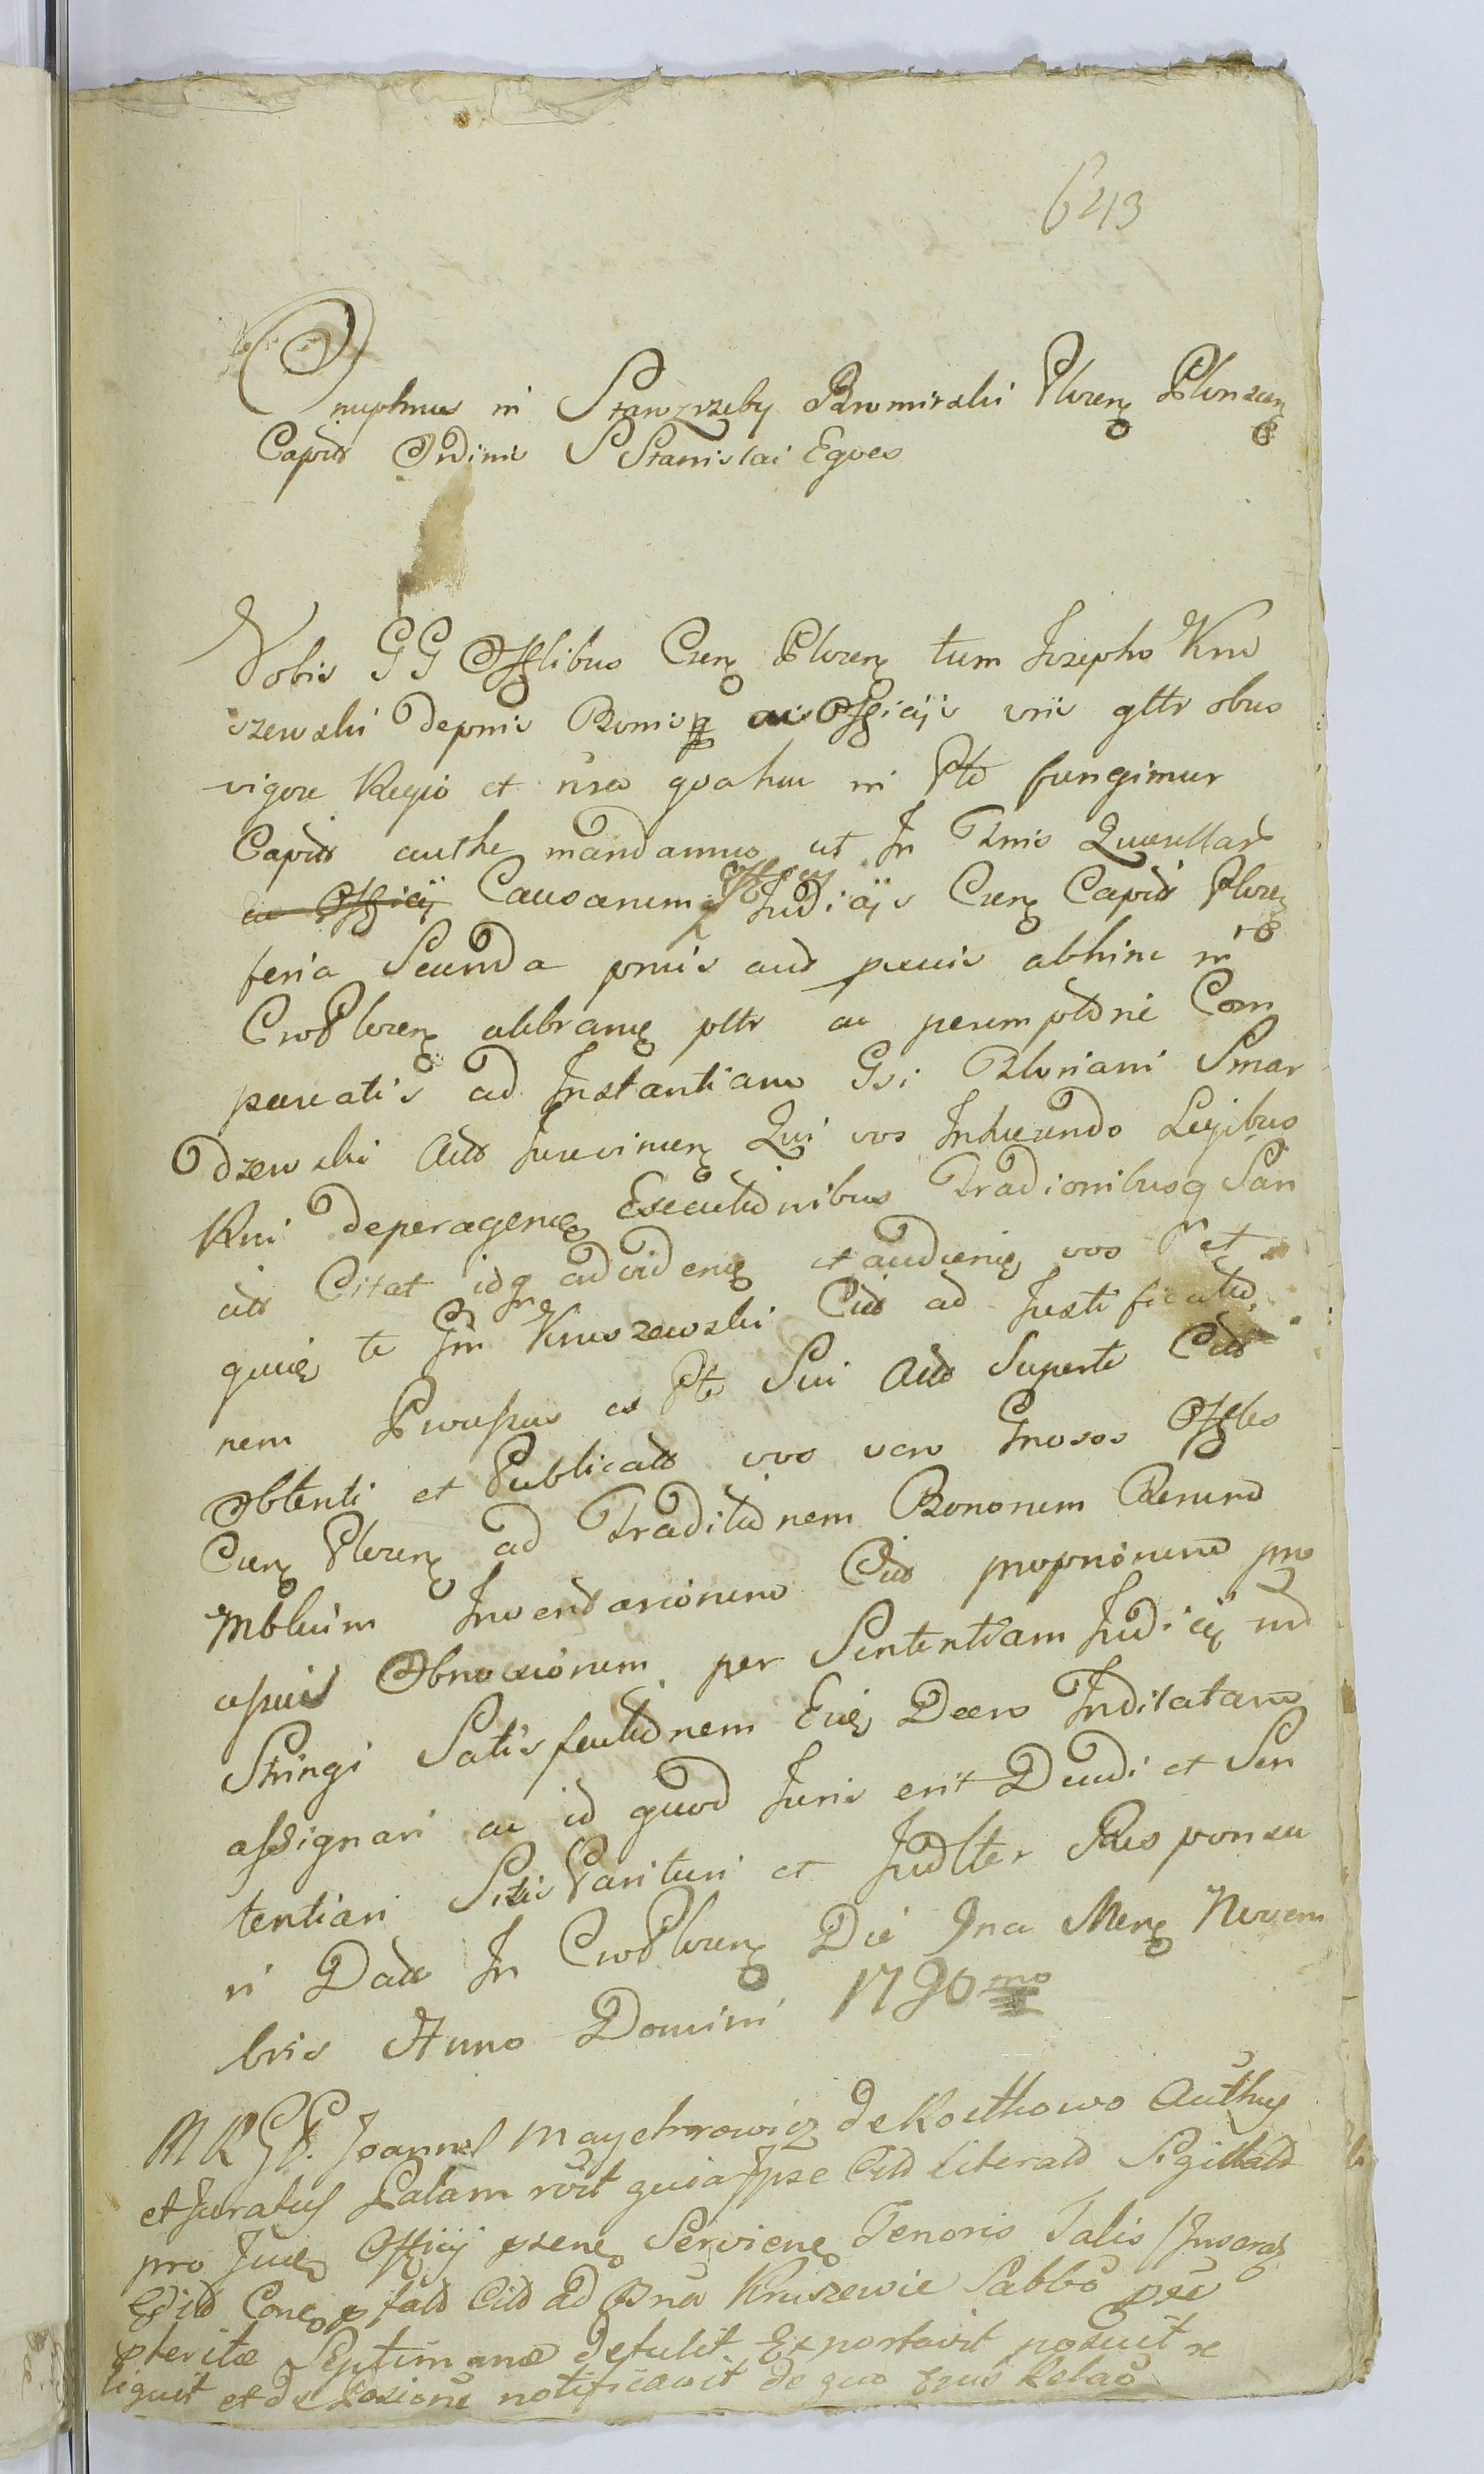 643
Onuphrius in Starozrzeby Bromirski Plocen Plonscen
Capits Ordinis S Stanislai Eques
Vobis GG Offlibus Csen Plocen tum Josepho Kru
szewski depnis Bonisq acis Officijs vris gltr obus
vigore Regio et nra qua hac in Pte fungimur
Capits authe mandamus ut In Tmis Querellar
ac Officij Causarum Offi Judicijs Csen Capits Plocen
feria Secunda pmis aut pcuis abhinc in
Cro Plocen celebrane pltr ac peremptorie Com
pareatis ad Instantiam Gsi Floriani Smar
dzewski Acts Jurevincen Qui vos Inhaerendo Legibus
Rni deperagene Executionibus Tradionibusq San
cits Citat idq ad videne et audiene vos
quie te Gm Kruszewski Cits ad Justificatio
nem Processus ex Pte Sui Acts Super te Cito
Obtenti et Publicats vos vero Gnosos Offles
Csen Plocen ad Traditionem Bonorum Rerum
Mbluim Inventariorum Cits propriorum pro
Obnoxiorum per Sententiam Judicij
Stringi Satisfactionem Decro Inditatam
assignari ac id quod Juris erit Decidi et Sen
tentiari Sitis Parituri et Judlter Responsu
ri Dats In Cro Plocen Die 9na Mens Novem
bris Anno Domini 1790mo
M R G P. Joannes Maychrowicz de Kostkowo Authus
et Juratus Palam rcit quia Ipse Cits literats Sigillats
pro Officij psene Serviene Tenoris Talis Inserat
Cone fats Cits ad Bna Kruszewie Sabbo
pteritae Septimanae detulit Exportavit posuit re
liquit et de Posicione notificavit de quo Ejus Relao